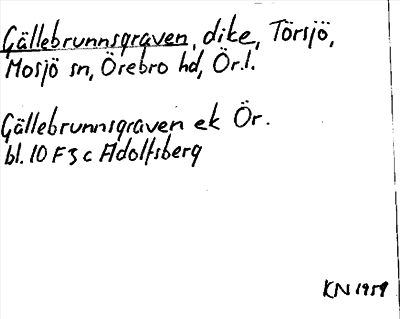 Gällebrunnsgraven, dike, Törsjö,
Mosjö sn, Örebro hd, Ör.l.
Gällebrunnsgraven ek Ör.
bl. 10 F 3 c Adolfsberg
KN 1959